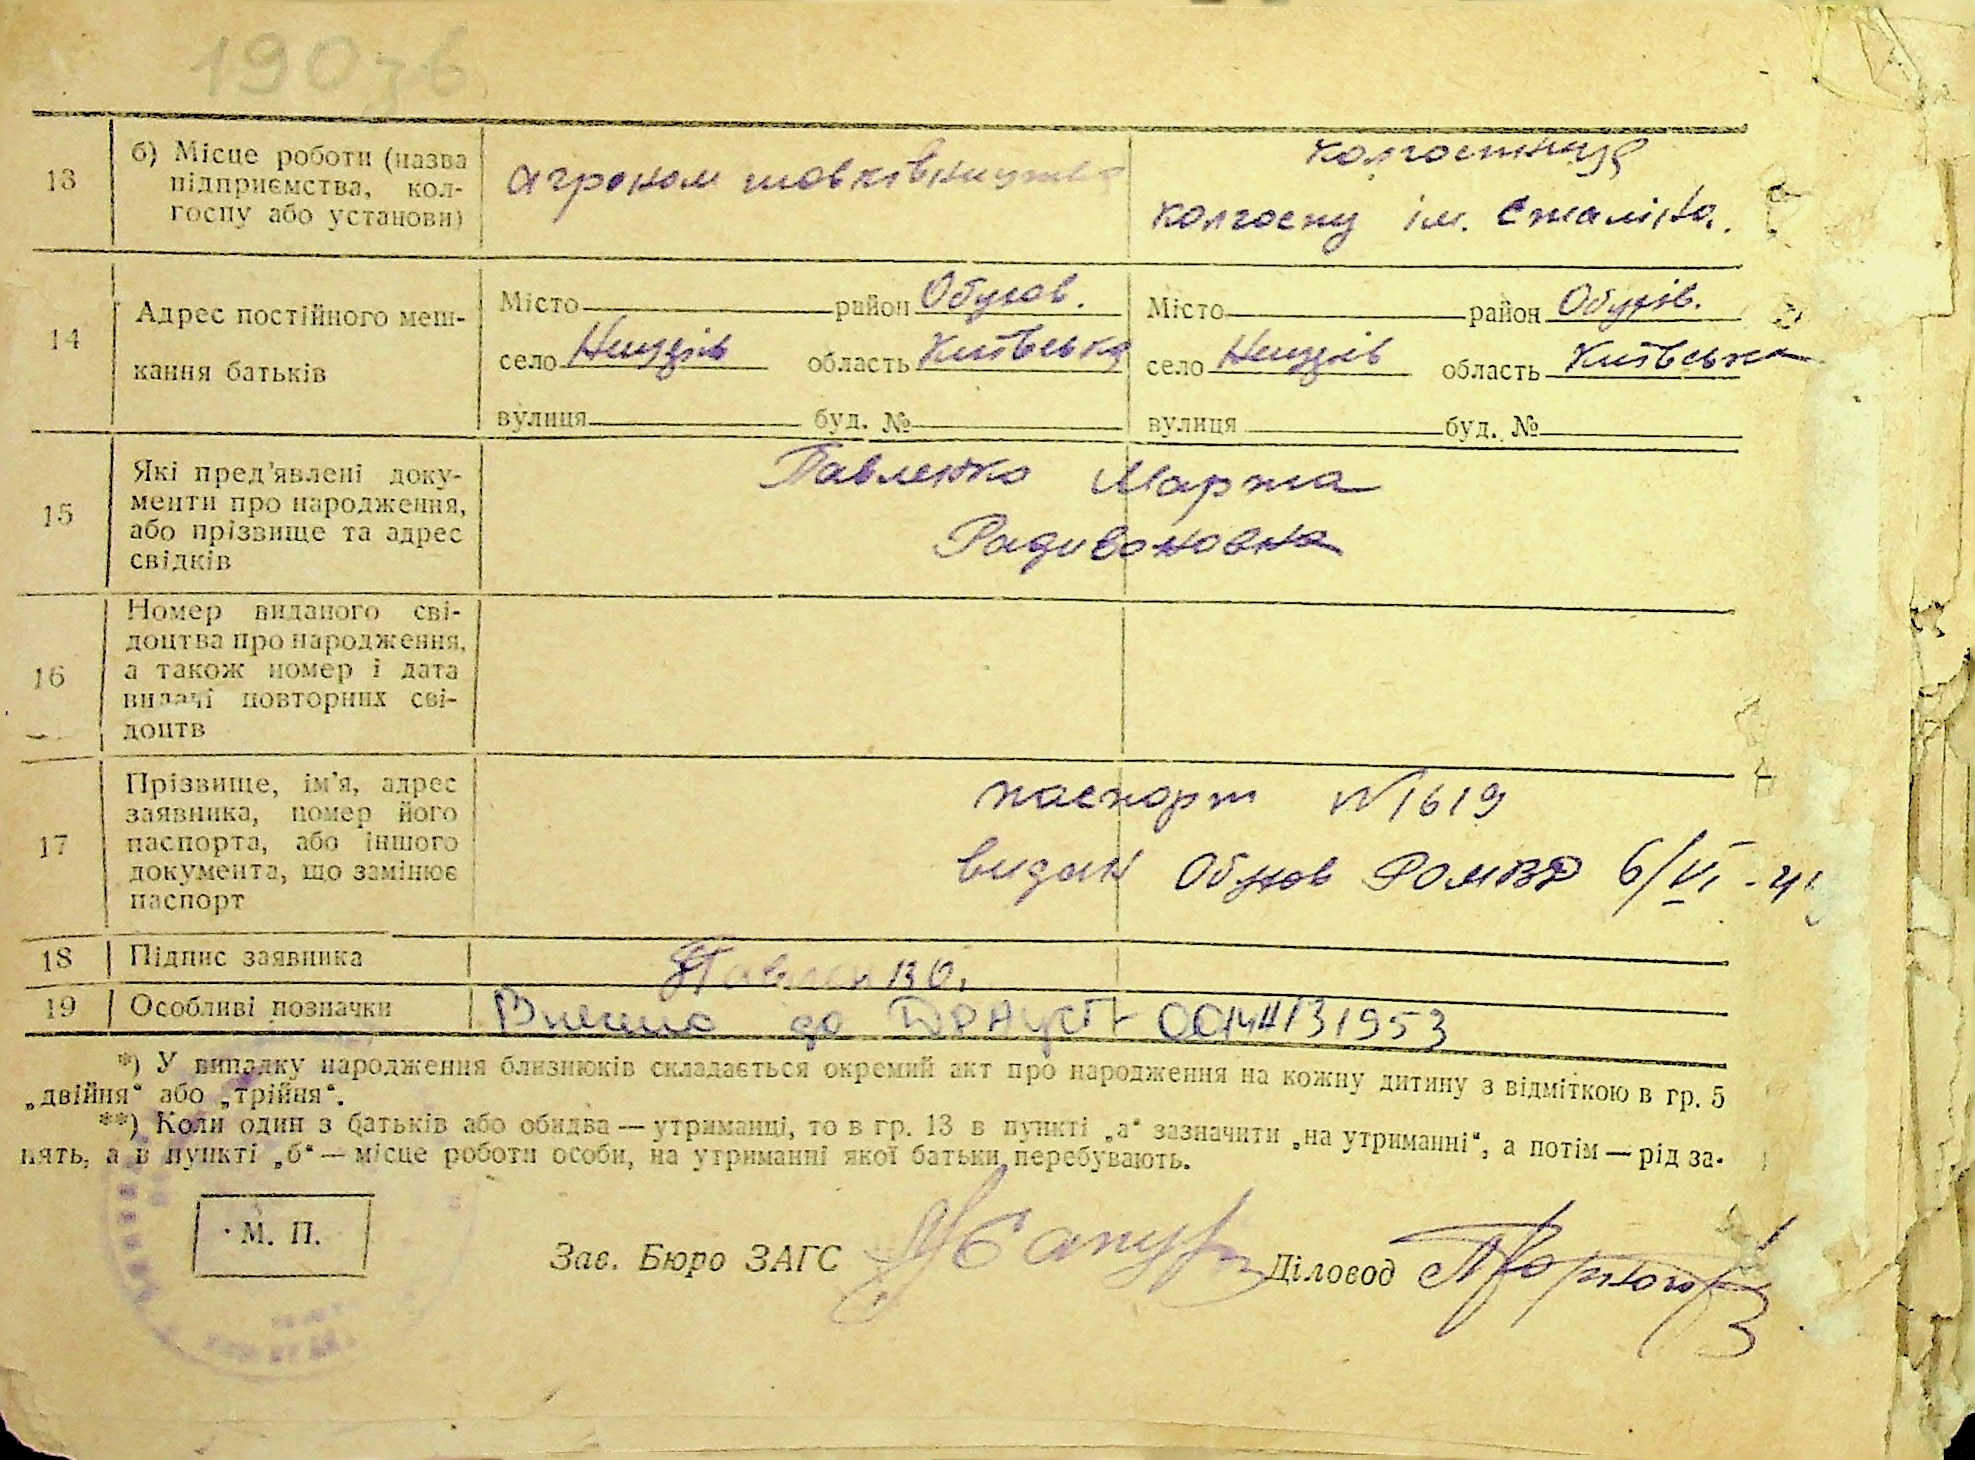 190зв
13
б) Місце роботи (назва
підприємства, кол-
госпу або установи)
агроном шовківництва
колгоспниця
колгоспу ім. Сталіна.
14
Адрес постійного меш-
кання батьків
Місто район Обухов.
село область Київська
вулиця буд. №
Місто район Обухів.
село область Київська
вулиця буд. №
15
Які пред'явлені доку-
менти про народження,
або прізвище та адрес
свідків
Павленко Марта
Радивоновна
16
Номер виданого сві-
доцтва про народження,
а також номер і дата
видачі повторних сві-
доцтв
17
Прізвище, ім'я, адрес
заявника, номер його
паспорта, або іншого
документа, що замінює
паспорт
паспорт №1619
видан Обухов РОМВД 6/VI
18 Підпис заявника Павленко.
19 Особливі позначки Внесено до ДРАЦСГ 00144131953
*) У випадку народження близнюків складається окремий акт про народження на кожну дитину з відміткою в гр. 5
„двійня“ або „трійня“.
**) Коли один з батьків або обидва — утриманці, то в гр. 13 в пункті „а“ зазначити „на утриманні“, а потім — рід за-
нять, а в пункті „б“ — місце роботи особи, на утриманні якої батьки перебувають.
М. П.
Зав. Бюро ЗАГС
Діловод